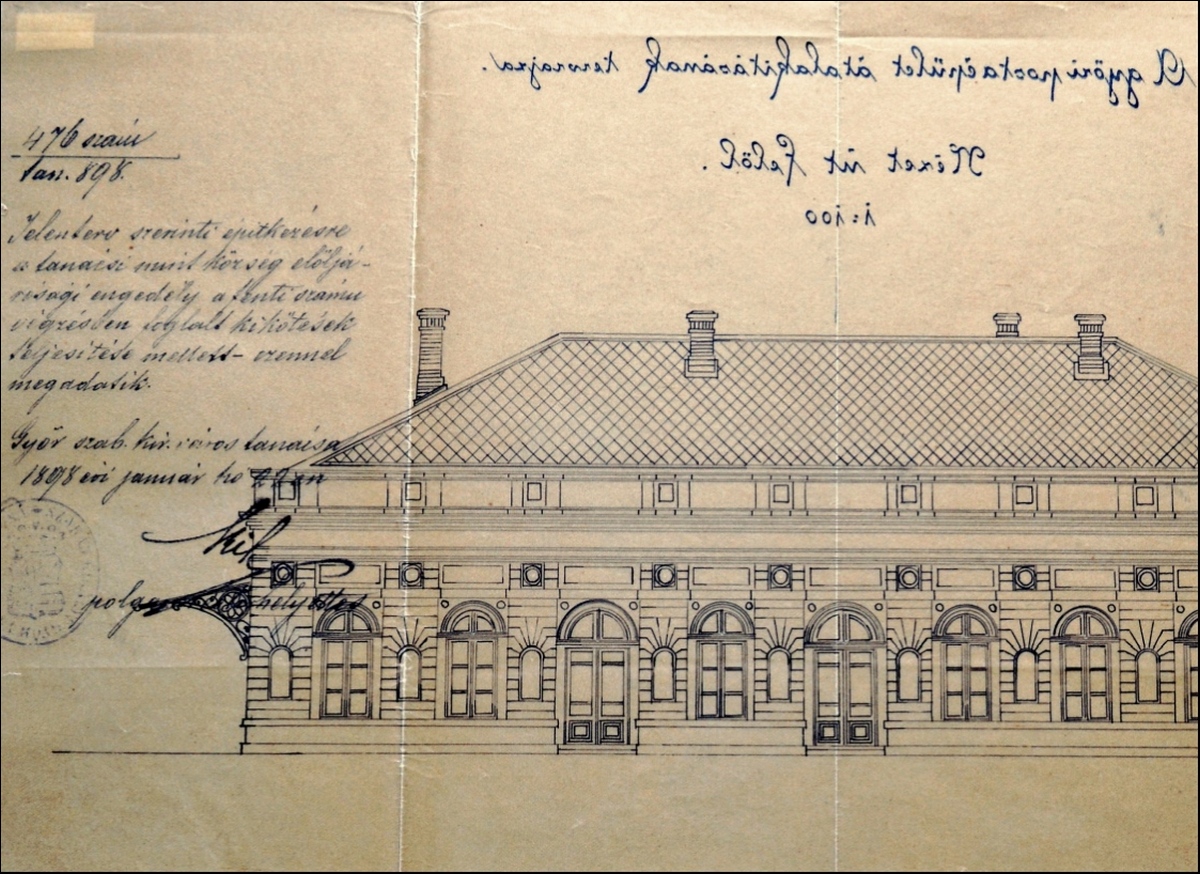 A győri postaépület átalakitásának tervrajza.
Nézet út felöl.
1:100
476 szám
tan. 898.
Jelenterv szerinti épitkezésre
a tanácsi mint község előljá-
rósági engedély a fenti számu
végzésben foglalt kikötések
teljesitése mellett - ezennel
megadatik.
Győr szab. kir. város tanácsa
1898 évi január hó 22 én
helyettes